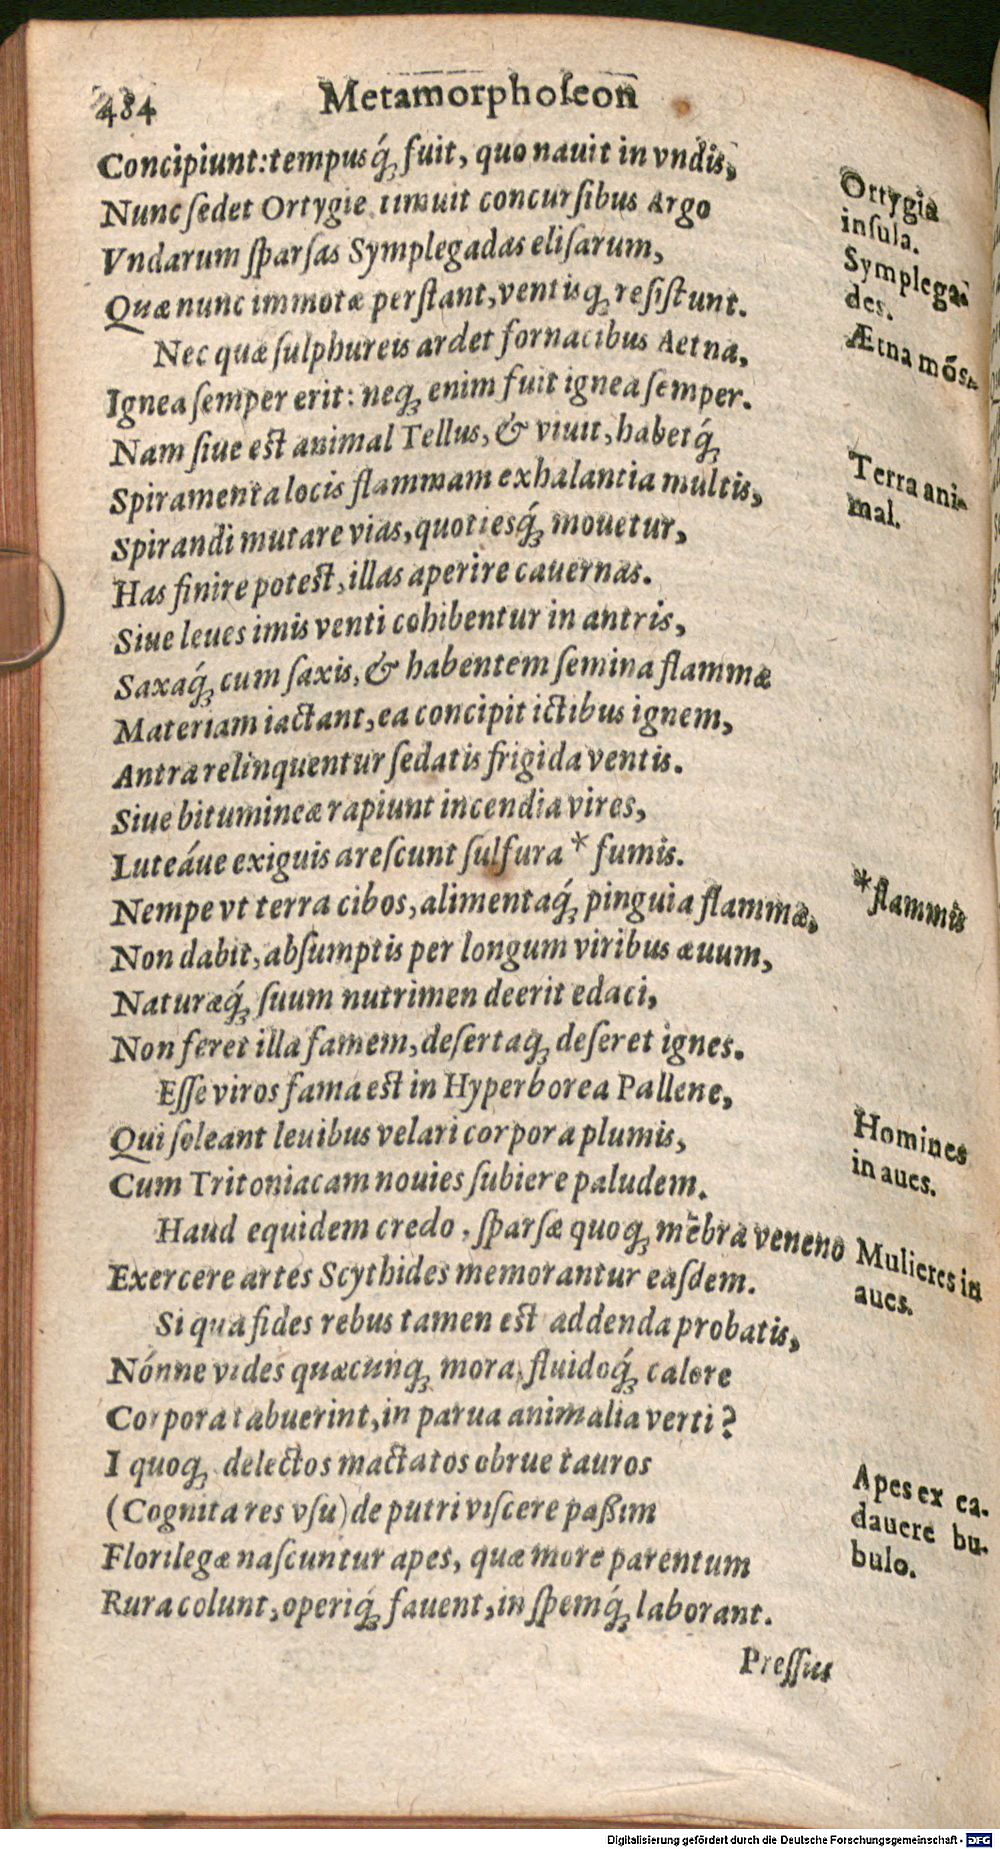 484 Metamorphoſeon
Concipiunt: tempusq́ꝫ fuit, quo nauit in vndis,
Nunc ſedet Ortygie. timuit concurſibus Argo
Vndarum ſparſas Symplegadas eliſarum,
Quæ nunc immotæ perſtant, ventisqꝫ reſiſtunt.
Nec quæ ſulphureis ardet fornacibus Aetna,
Ignea ſemper erit: neqꝫ enim fuit ignea ſemper.
Nam ſiue eſt animal Tellus, & viuit, habetq́ꝫ
Spiramenta locis flammam exhalantia multis,
Spirandi mutare vias, quotiesq́ꝫ mouetur,
Has finire poteſt, illas aperire cauernas.
Siue leues imis venti cohibentur in antris,
Saxaq́ꝫ cum ſaxis, & habentem ſemina flammæ
Materiam iactant, ea concipit ictibus ignem,
Antra relinquentur ſedatis frigida ventis.
Siue bitumineæ rapiunt incendia vires,
Luteáue exiguis areſcunt ſulfura * fumis.
Nempe vt terra cibos, alimentaq́ꝫ pinguia flammæ,
Non dabit, abſumptis per longum viribus æuum,
Naturæq́ꝫ ſuum nutrimen deerit edaci,
Non feret illa famem, deſertaqꝫ deſeret ignes.
Eſſe viros fama eſt in Hyperborea Pallene,
Qui ſoleant leuibus velari corpora plumis,
Cum Tritoniacam nouies ſubiere paludem.
Haud equidem credo, ſparſæ quoqꝫ mẽbra veneno
Exercere artes Scythides memorantur eaſdem.
Si qua fides rebus tamen eſt addenda probatis,
Nónne vides quæcunqꝫ mora, fluidoq́ꝫ calore
Corpora tabuerint, in parua animalia verti?
I quoqꝫ delectos mactatos obrue tauros
(Cognita res vſu) de putri viſcere paßim
Florilegæ naſcuntur apes, quæ more parentum
Rura colunt, operiq́ꝫ fauent, in ſpemq́ꝫ laborant.
Preſſus
Ortygia
inſula.
Symplega-
des.
Ætna mõs.
Terra ani-
mal.
*flammis
Homines
in aues.
Mulieres in
aues.
Apes ex ca-
dauere bu-
bulo.
Digitalisierung gefördert durch die Deutsche Forschungsgemeinschaft - DFG